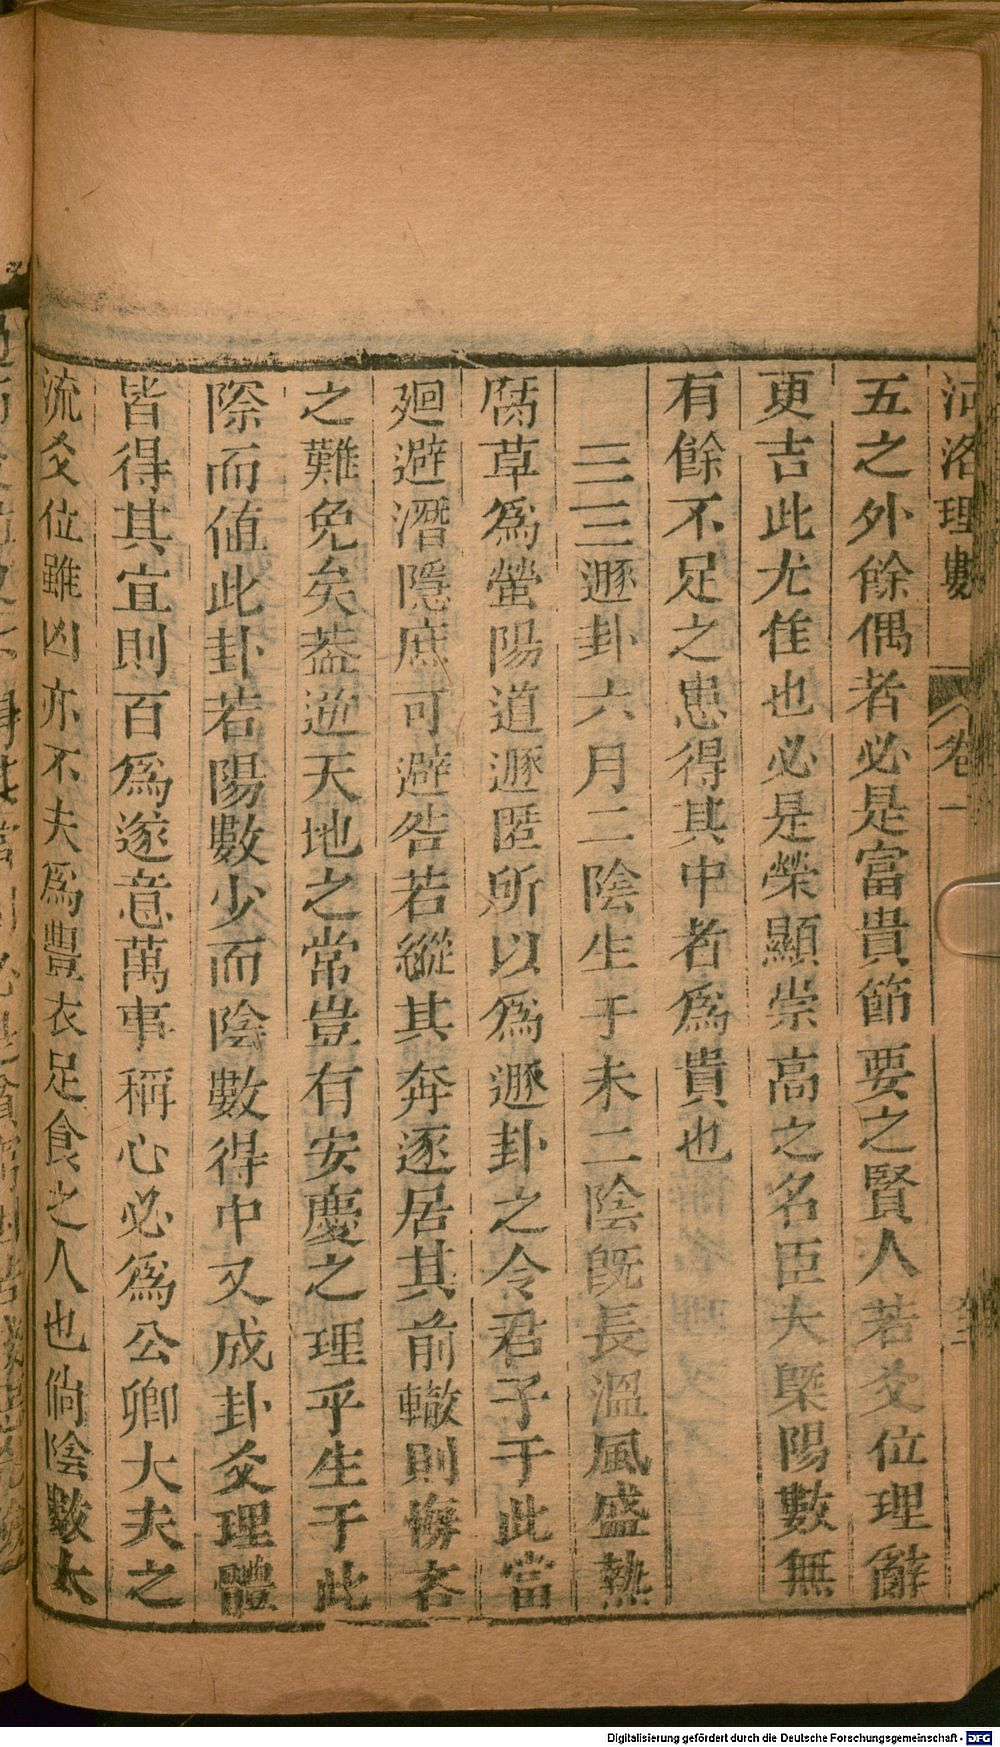 河洛理數 卷一
五之外餘偶者必是富貴節要之賢人若爻位理辭
更吉此尤隹也必是榮顯崇高之名臣大槩陽數無
有餘不足之患得其中者爲貴也
三三遯卦六月二陰生于未二陰旣長溫風盛熱
腐草爲螢陽道遯匿所以爲遯卦之令君子于此當
廻避潛隱庶可避咎若縱其奔逐居其前轍則悔吝
之難免矣葢逆天地之常豈有安慶之理乎生于此
際而値此卦若陽數少而陰數得中又成卦爻理體
皆得其宜則百爲遂意萬事稱心必爲公卿大夫之
流爻位雖凶亦不失爲豐衣足食之人也倘陰數太
Digitalisierung gefördert durch die Deutsche Forschungsgemeinschaft - DFG